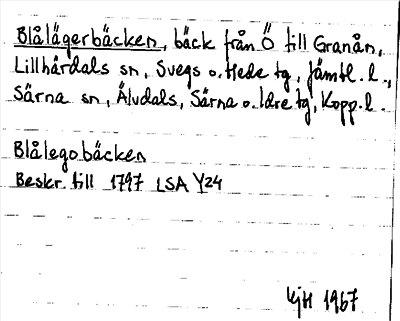 Blålägerbäcken, bäck från Ö till Granån,
Lillhärdals sn, Svegs o. Hede tg, Jämtl. l.,
Särna sn, Älvdals, Särna o. Idre tg, Kopp. l.
Blålegobäcken
Beskr. till 1797 LSA Y24
KjH 1967